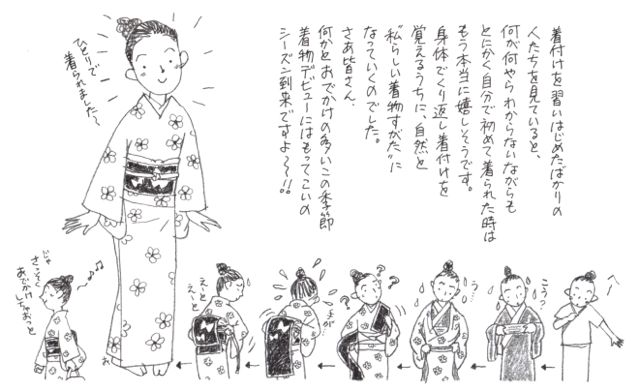 着付けを習いはじめたばかりの
人たちを見ていると、
何が何やらわからないながらも
とにかく自分で初めて着られた時は
もう本当に嬉しそうです。
身体でくり返し着付けを
覚えるうちに、自然と
"私らしい着物すがた"に
なっていくのでした。
さあ皆さん、
何かとおでかけの多いこの季節
着物デビューにはもってこいの
シーズン到来ですよ〜〜!!
ひとりで
着られました〜
こうっ?
う…
? ? ?
手が…
えーと
えーと
じゃ
さっそく
おでかけ
しちゃおっと
♪♪